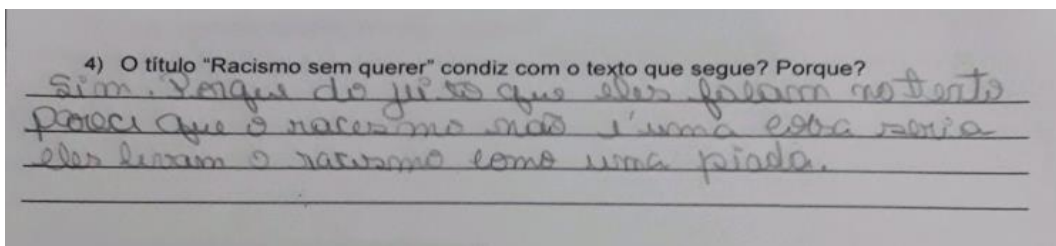 4) O título "Racismo sem querer" condiz com o texto que segue? Porque?
Sim. Porque do jeito que eles falam no texto
pareci que o racismo não é uma coisa seria
eles levam o racismo como uma piada.